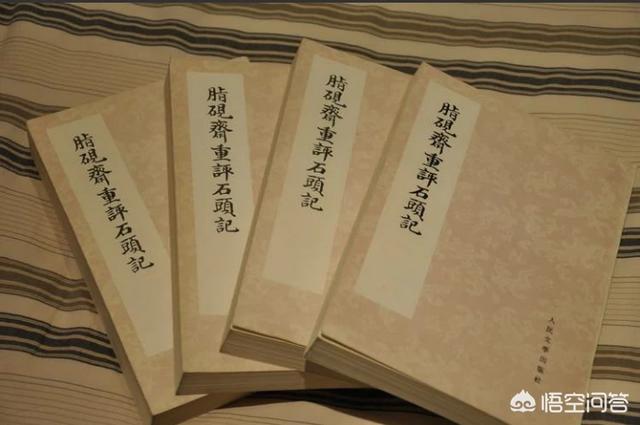 脂硯齋重評石頭記
脂硯齋重評石頭記
脂硯齋重評石頭記
脂硯齋重評石頭記
人民文學出版社
悟空问答